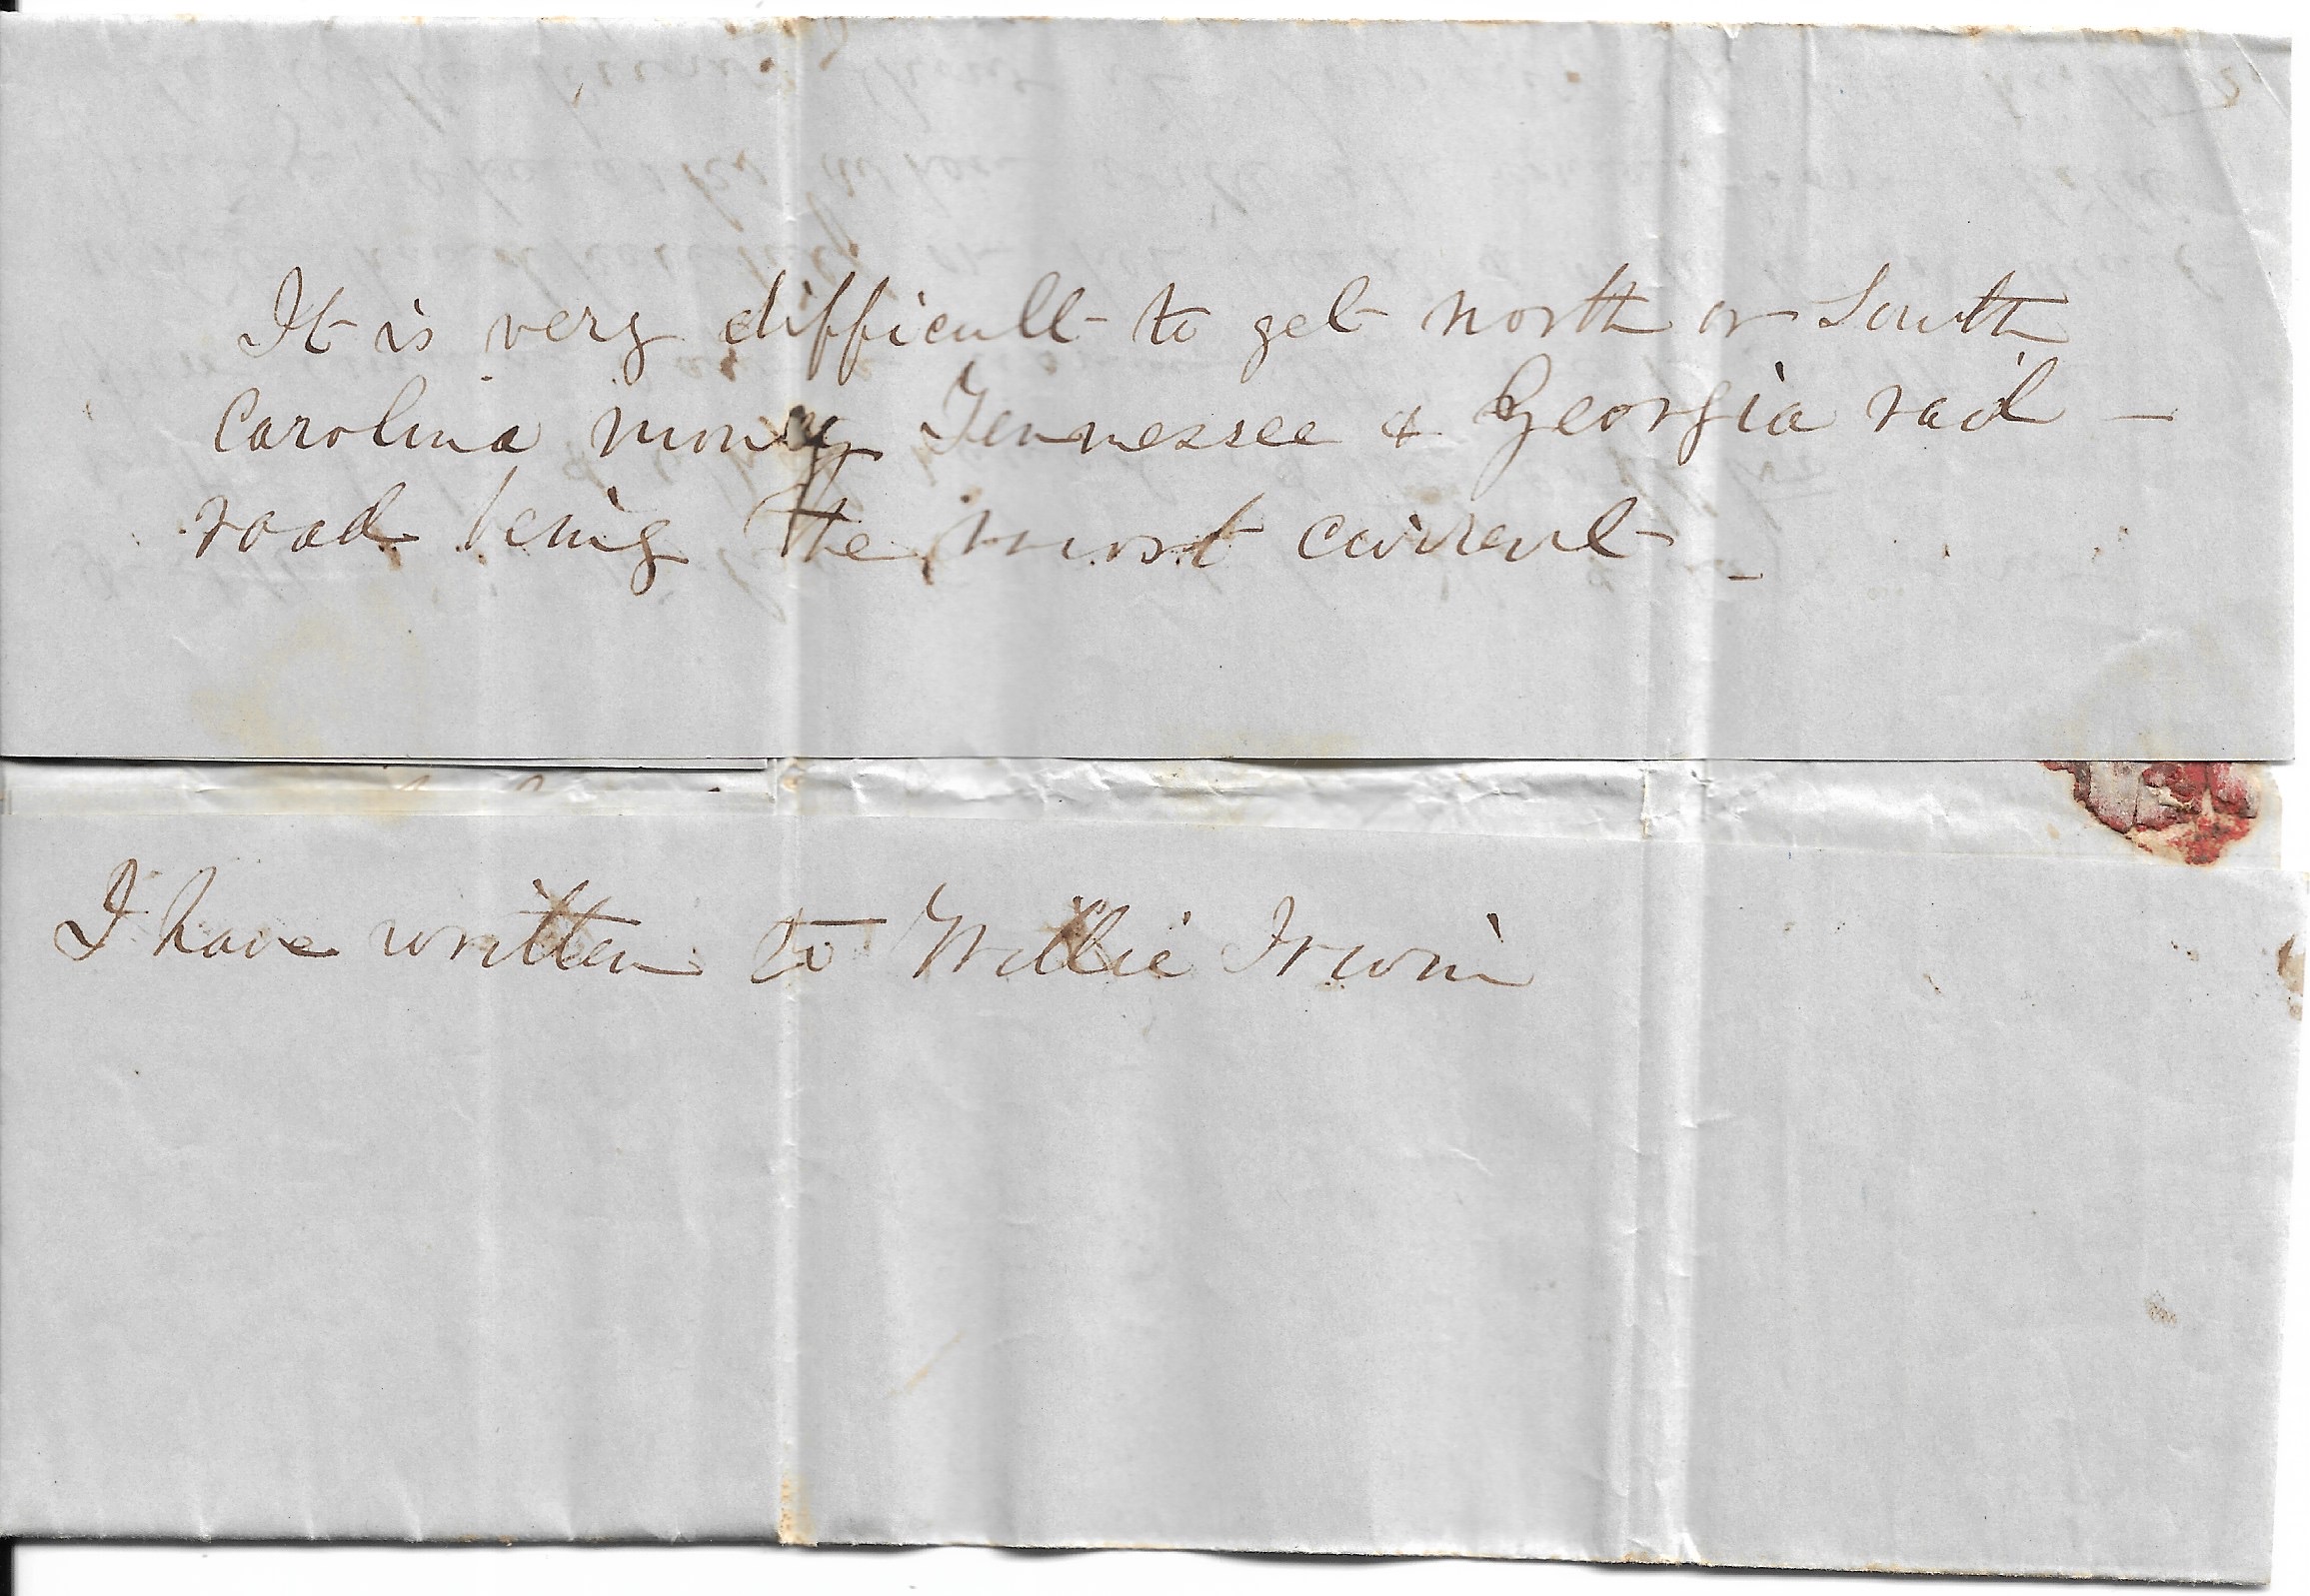 It is very difficult to get north or South
Carolina money Tennessee & Georgia rail –
road being the most current –
I have written to Willie Irwin